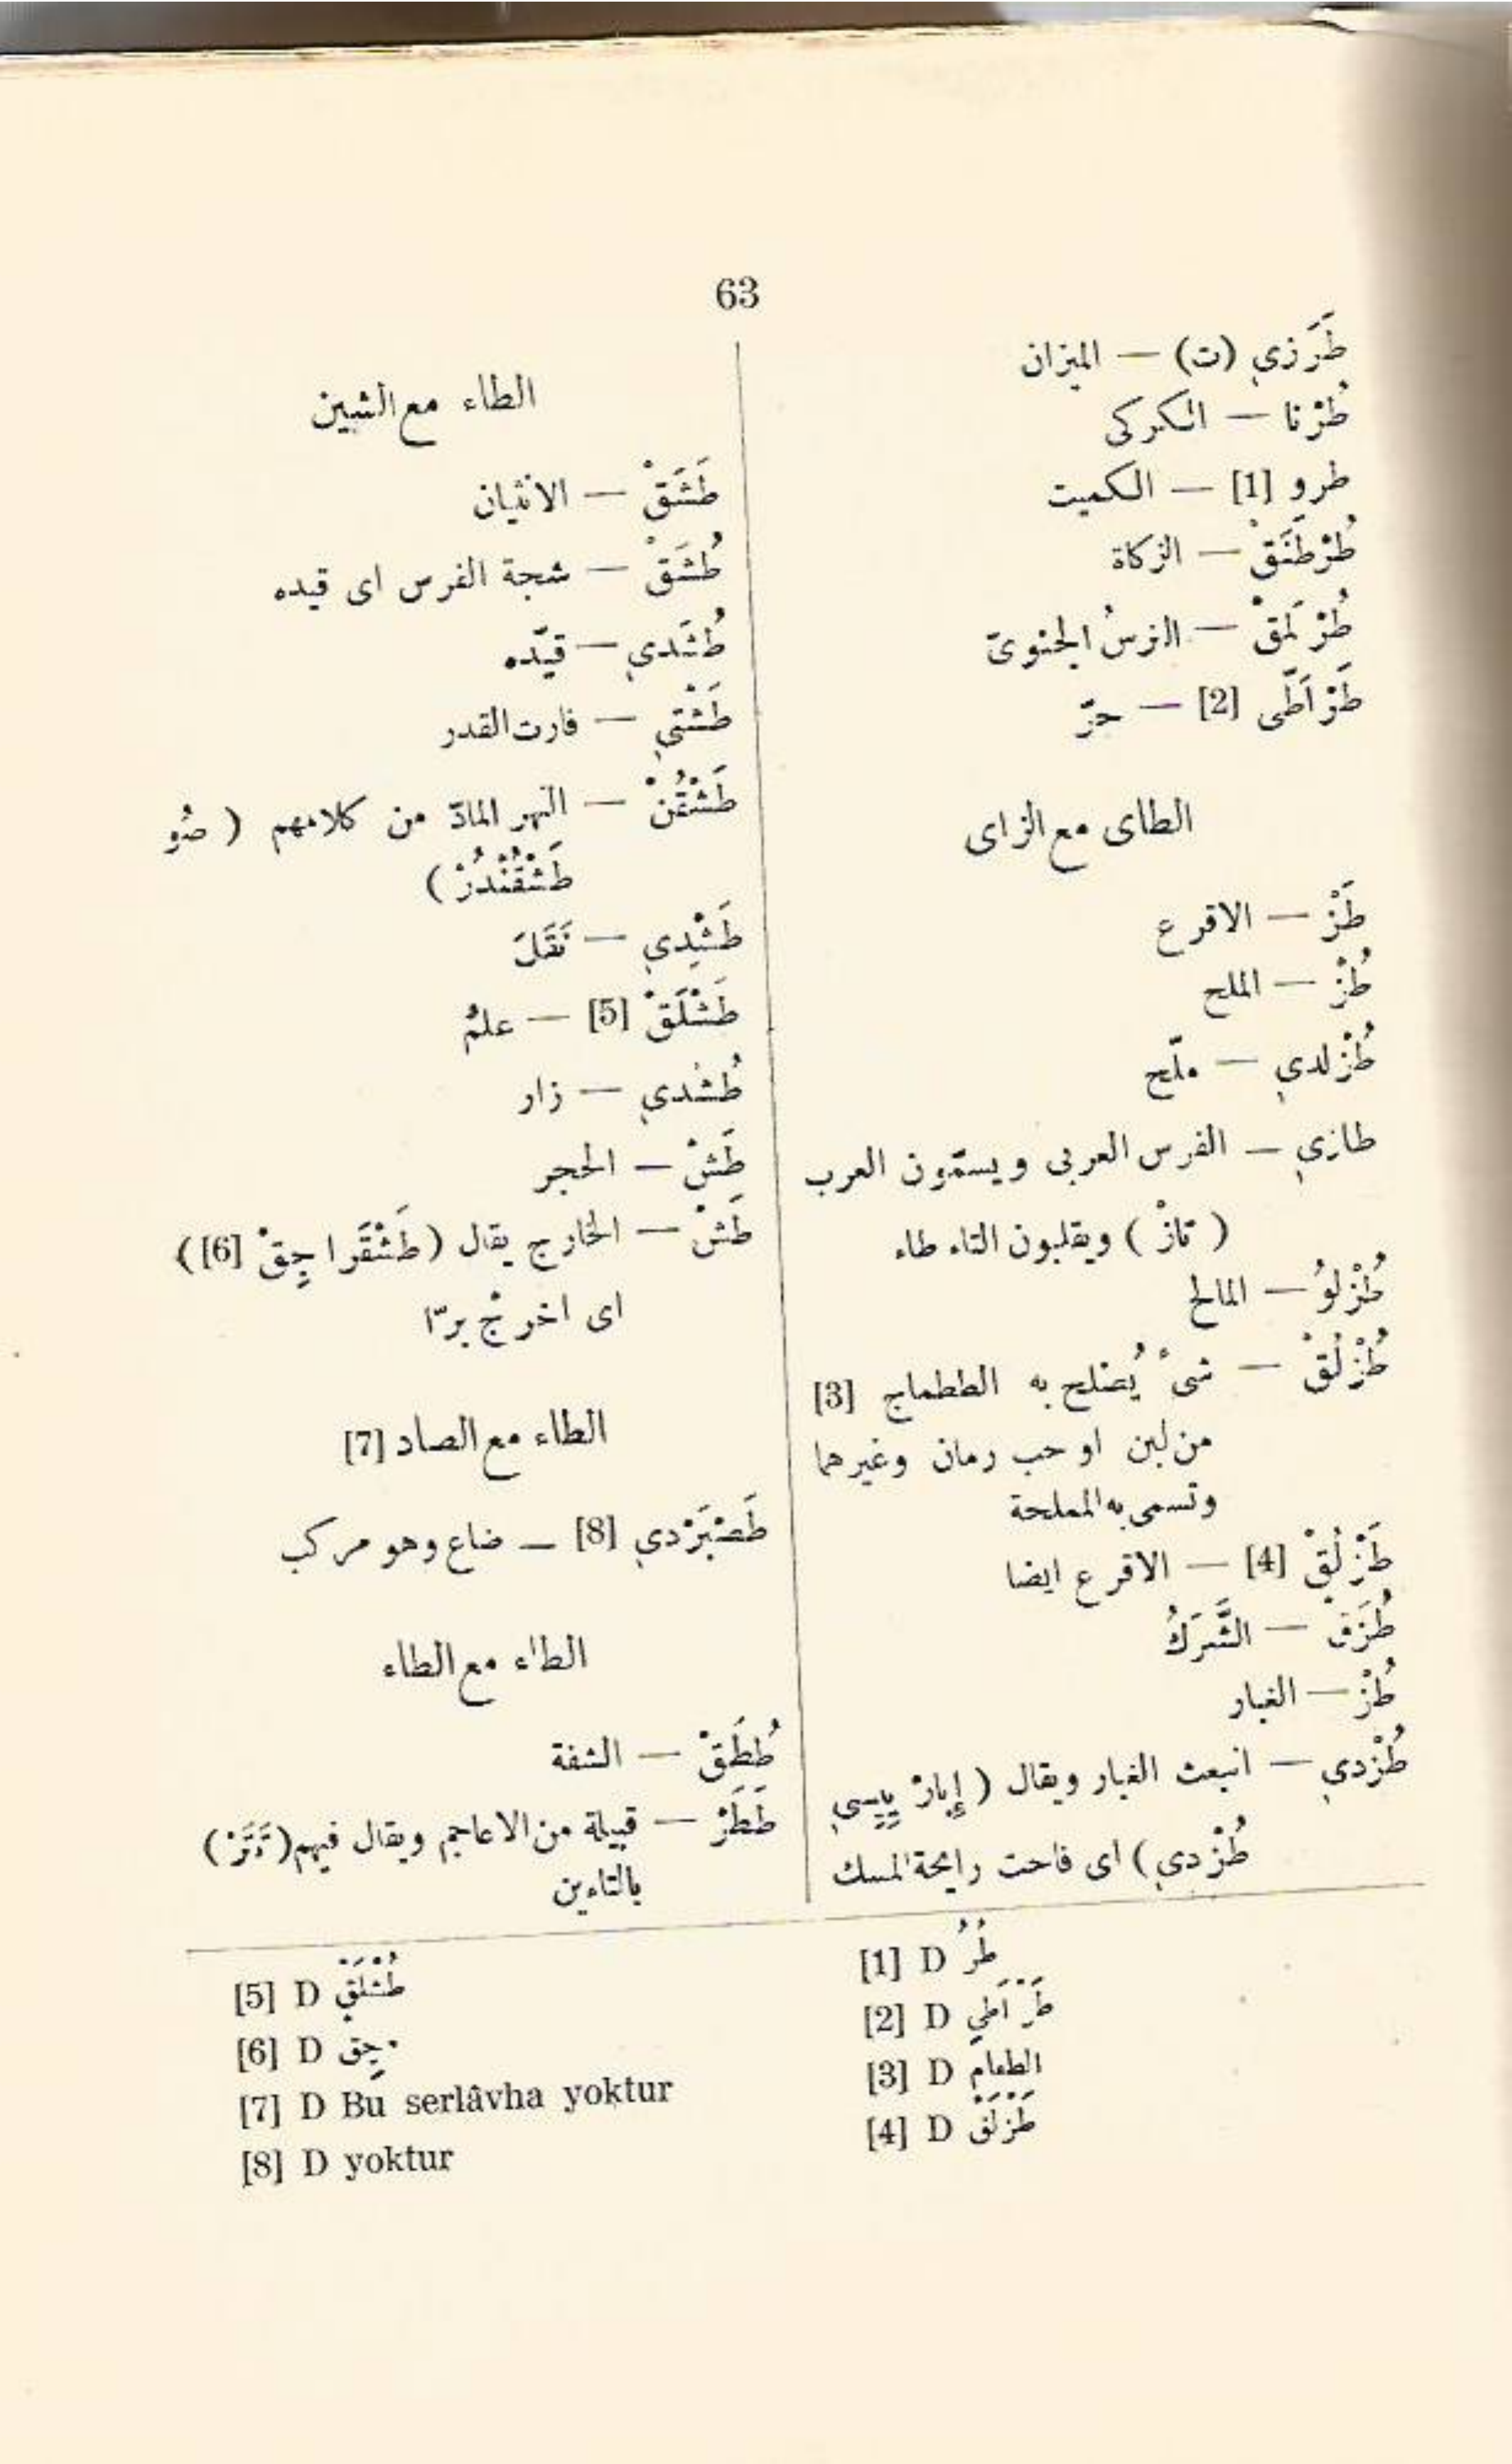 63
طَرَزي (ت) — الميزان
طُرْنا — الكركى
طرو [1] — الكميت
طُرْطَنَقْ — الزكاة
طُرْلَمَقْ — الترسُ الجنوىّ
طَرْاَطَّى [2] — حرّ
الطاى مع الزاى
طَزْ — الاقرع
طُزْ — الملح
طُزْلدي — ملّح
طازي — الفرس العربى ويسمّون العرب
( تازْ ) ويقلبون التاء طاء
طُزْلوُ — المالح
طُزْلُقْ — شىءٌ يُصْلح به الططماج [3]
من لبن او حب رمان وغيرهما
وتسمى به المملحة
طَزْلُقْ [4] — الاقرع ايضا
طُزَقْ — الشَّرَكُ
طُزْ — الغبار
طُزْدي — انبعث الغبار ويقال ( إِبارْ يِيِسى
طُزْدي ) اى فاحت رايحة المسك
الطاء مع الشين
طَشَقْ — الانثيان
طُشَقْ — شجة الفرس اى قيده
طُشَدي — قيّده
طَشْتي — فارت القدر
طَشْقُنْ — النهر المادّ من كلامهم ( صُو
طَشْقُنْدُرْ )
طَشْدِي — نَقَلَ
طَشْلَقْ [5] — علمٌ
طُشدي — زار
طَشْ — الحجر
طَشْ — الخارج يقال ( طَشْقَرا جِقْ [6] )
اى اخرجْ برّا
الطاء مع الصاد [7]
طَصْبَرْدي [8] — ضاع وهو مركب
الطاء مع الطاء
طُطَقْ — الشفة
طَطَرْ — قبيلة من الاعاجم ويقال فيهم ( تَتَرْ )
بالتاءين
[1] D طُرُ
[2] D طَرْاَطي
[3] D الطعام
[4] D طَزْلَقْ
[5] D طُشْلَقْ
[6] D جِق
[7] D Bu serlâvha yoktur
[8] D yoktur